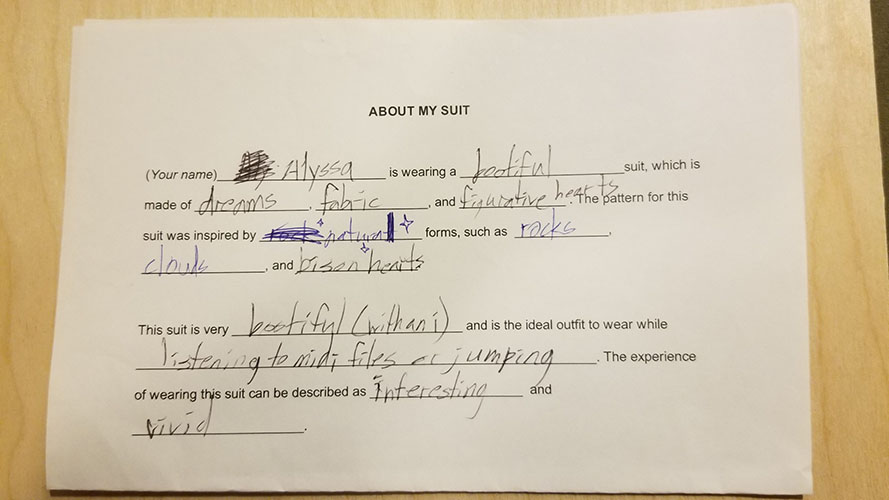 ABOUT MY SUIT
(Your name) Alyssa is wearing a bootiful suit, which is
made of dreams, fabric, and figurative hearts. The pattern for this
suit was inspired by natural forms, such as rocks,
clouds, and bison hearts
This suit is very bootiful (with an i) and is the ideal outfit to wear while
listening to midi files or jumping. The experience
of wearing this suit can be described as interesting and
vivid.